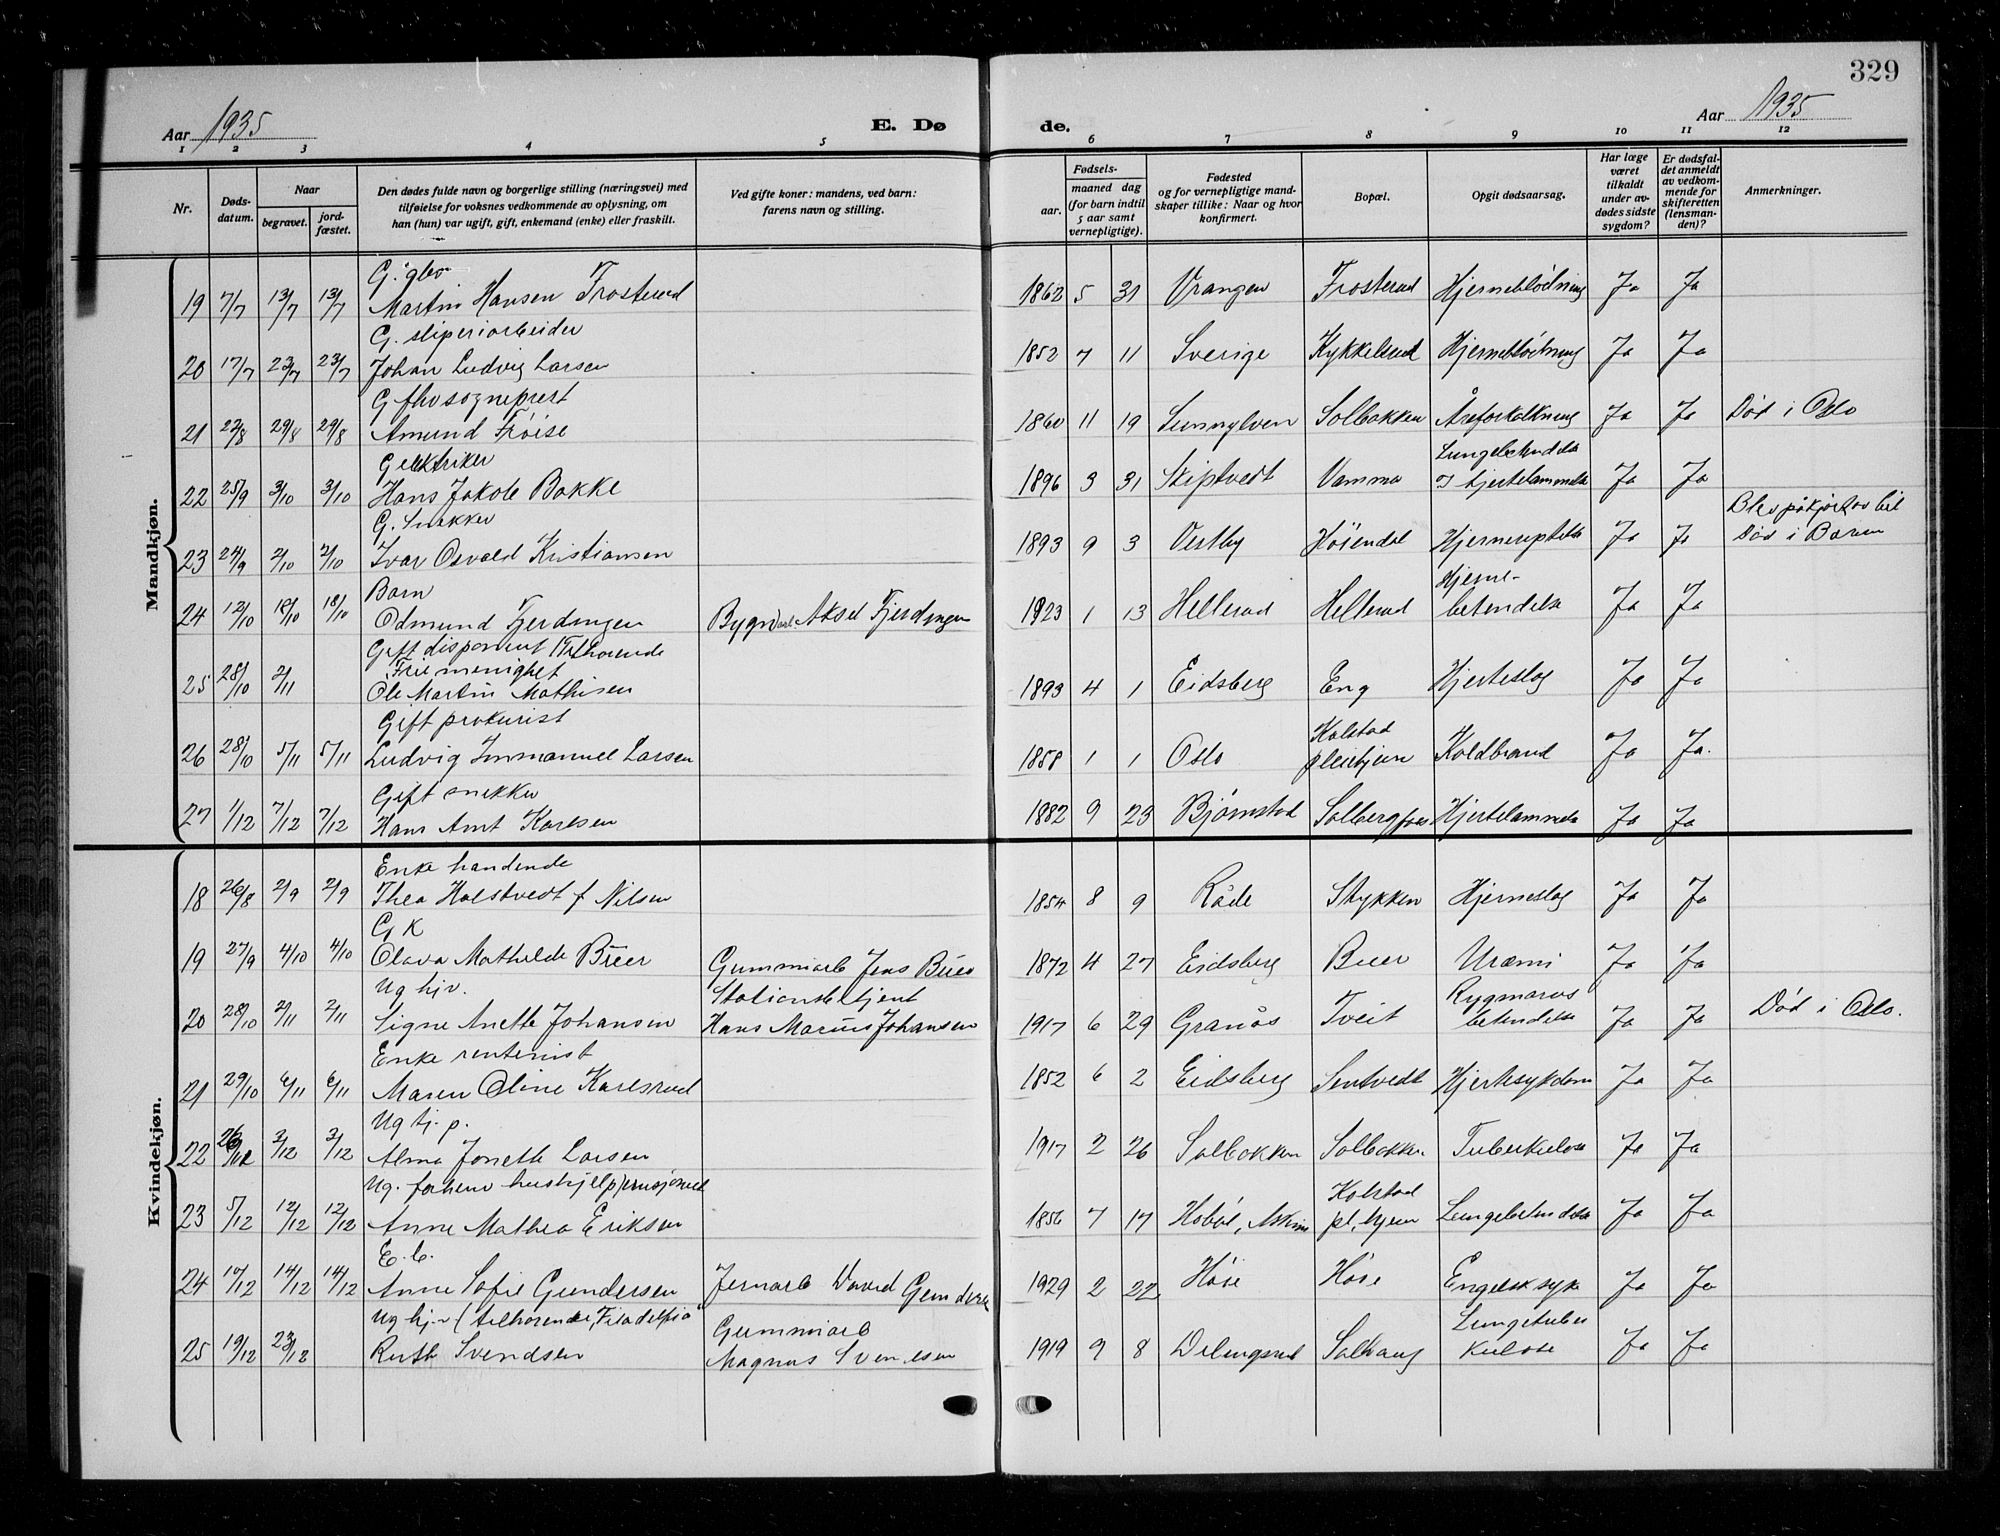 329
Aar 1935 E. Dø de. Aar 1935
1 2 3 4 5 6 7 8 9 10 11 12
Nr. Døds-datum. Naar begravet. jord-fæstet. Den dødes fulde navn og borgerlige stilling (næringsvei) med tilføielse for voksnes vedkommende av oplysning, om han (hun) var ugift, gift, enkemand (enke) eller fraskilt. Ved gifte koner: mandens, ved barn: farens navn og stilling. Fødsels- aar. maaned dag (for barn indtil 5 aar samt vernepligtige). Fødested og for vernepligtige mand-skaper tillike: Naar og hvor konfirmert. Bopæl. Opgit dødsaarsag. Har læge været tilkaldt under av-dødes sidste sygdom? Er dødsfal-det anmeldt av vedkom-mende for skifteretten (lensman-den)? Anmerkninger.
Mandkjøn.
G. gbr
19 7/7 13/7 13/7 Martin Hansen Frosterud 1862 5 31 Vrangen Frosterud Hjerneblødning Ja Ja
G. sliperiarbeider
20 17/7 23/7 23/7 Johan Ludvig Larsen 1852 7 11 Sverige Kykkelsrud Hjerneblødning Ja Ja
G fhv sogneprest
21 22/8 29/8 29/8 Amund Frøise 1860 11 19 Sunnylven Solbakken Åreforkalkning Ja Ja Død i Oslo
G elektriker Lungebetendelse
22 25/9 3/10 3/10 Hans Jakob Bakke 1896 3 31 Skiptvedt Vamma og hjertelammelse Ja Ja
G. Snekker Blev påkjørt av bil
23 24/9 2/10 2/10 Ivar Osvald Kristiansen 1893 9 3 Vestby Høiendal Ja Ja Død i
Barn Hjerne-
24 12/10 18/10 18/10 Odmund Fjerdingen Bygn.arb. Aksel Fjerdingen 1923 1 13 Hellerud Hellerud betendelse Ja Ja
Gift disponent (Tilhørende
Frie menighet
25 28/10 2/11 Ole Martin Mathisen 1893 4 1 Eidsberg Eng Hjerteslag Ja Ja
Gift prokurist Kolstad
26 28/10 5/11 5/11 Ludvig Immanuel Larsen 1858 1 1 Oslo pleiehjem Koldbrand Ja Ja.
Gift snekker
27 1/12 7/12 7/12 Hans Arnt Karlsen 1882 9 23 Bjørnstad Solbergfoss Hjertelammelse Ja Ja
Kvindekjøn.
Enke handlende
18 26/8 2/9 2/9 Thea Holstvedt f Nilsen 1854 8 9 Råde Stykken Hjerneslag Ja Ja
G K
19 27/9 4/10 4/10 Olava Mathilde Buer Gummiarb Jens Buer 1872 4 27 Eidsberg Buer Uræmi Ja Ja
Ug hjv. Stationsbetjent Rygmarvs
20 28/10 2/11 2/11 Signe Anette Johansen Hans Marius Johansen 1917 6 29 Granås Tveit betendelse Ja Ja Død i Oslo.
Enke rentenist
21 29/10 6/11 6/11 Maren Oline Karlsrud 1852 6 2 Eidsberg Sentvedt Hjertesykdom Ja Ja
Ug tj. p.
22 3/12 3/12 Alma Jonette Larsen 1917 2 26 Solbakken Solbakken Tuberkulose Ja Ja
Ug. forhenv hushjelp pensjonert Kolstad
23 5/12 12/12 12/12 Anne Mathea Eriksen 1856 7 17 Hobøl, Askim pl. hjem Lungebetendelse Ja Ja
E. b.
24 10/12 14/12 14/12 Anne Sofie Gundersen Jernarb David Gundersen 1929 2 22 Høse Høse Engelsk syke Ja Ja
Ug hjv (tilhørende "Filadelfia" Gummiarb Lungetuber
25 19/12 23/12 Ruth Svendsen Magnus Svendsen 1919 9 8 Delingsrud Solhaug kulose Ja Ja